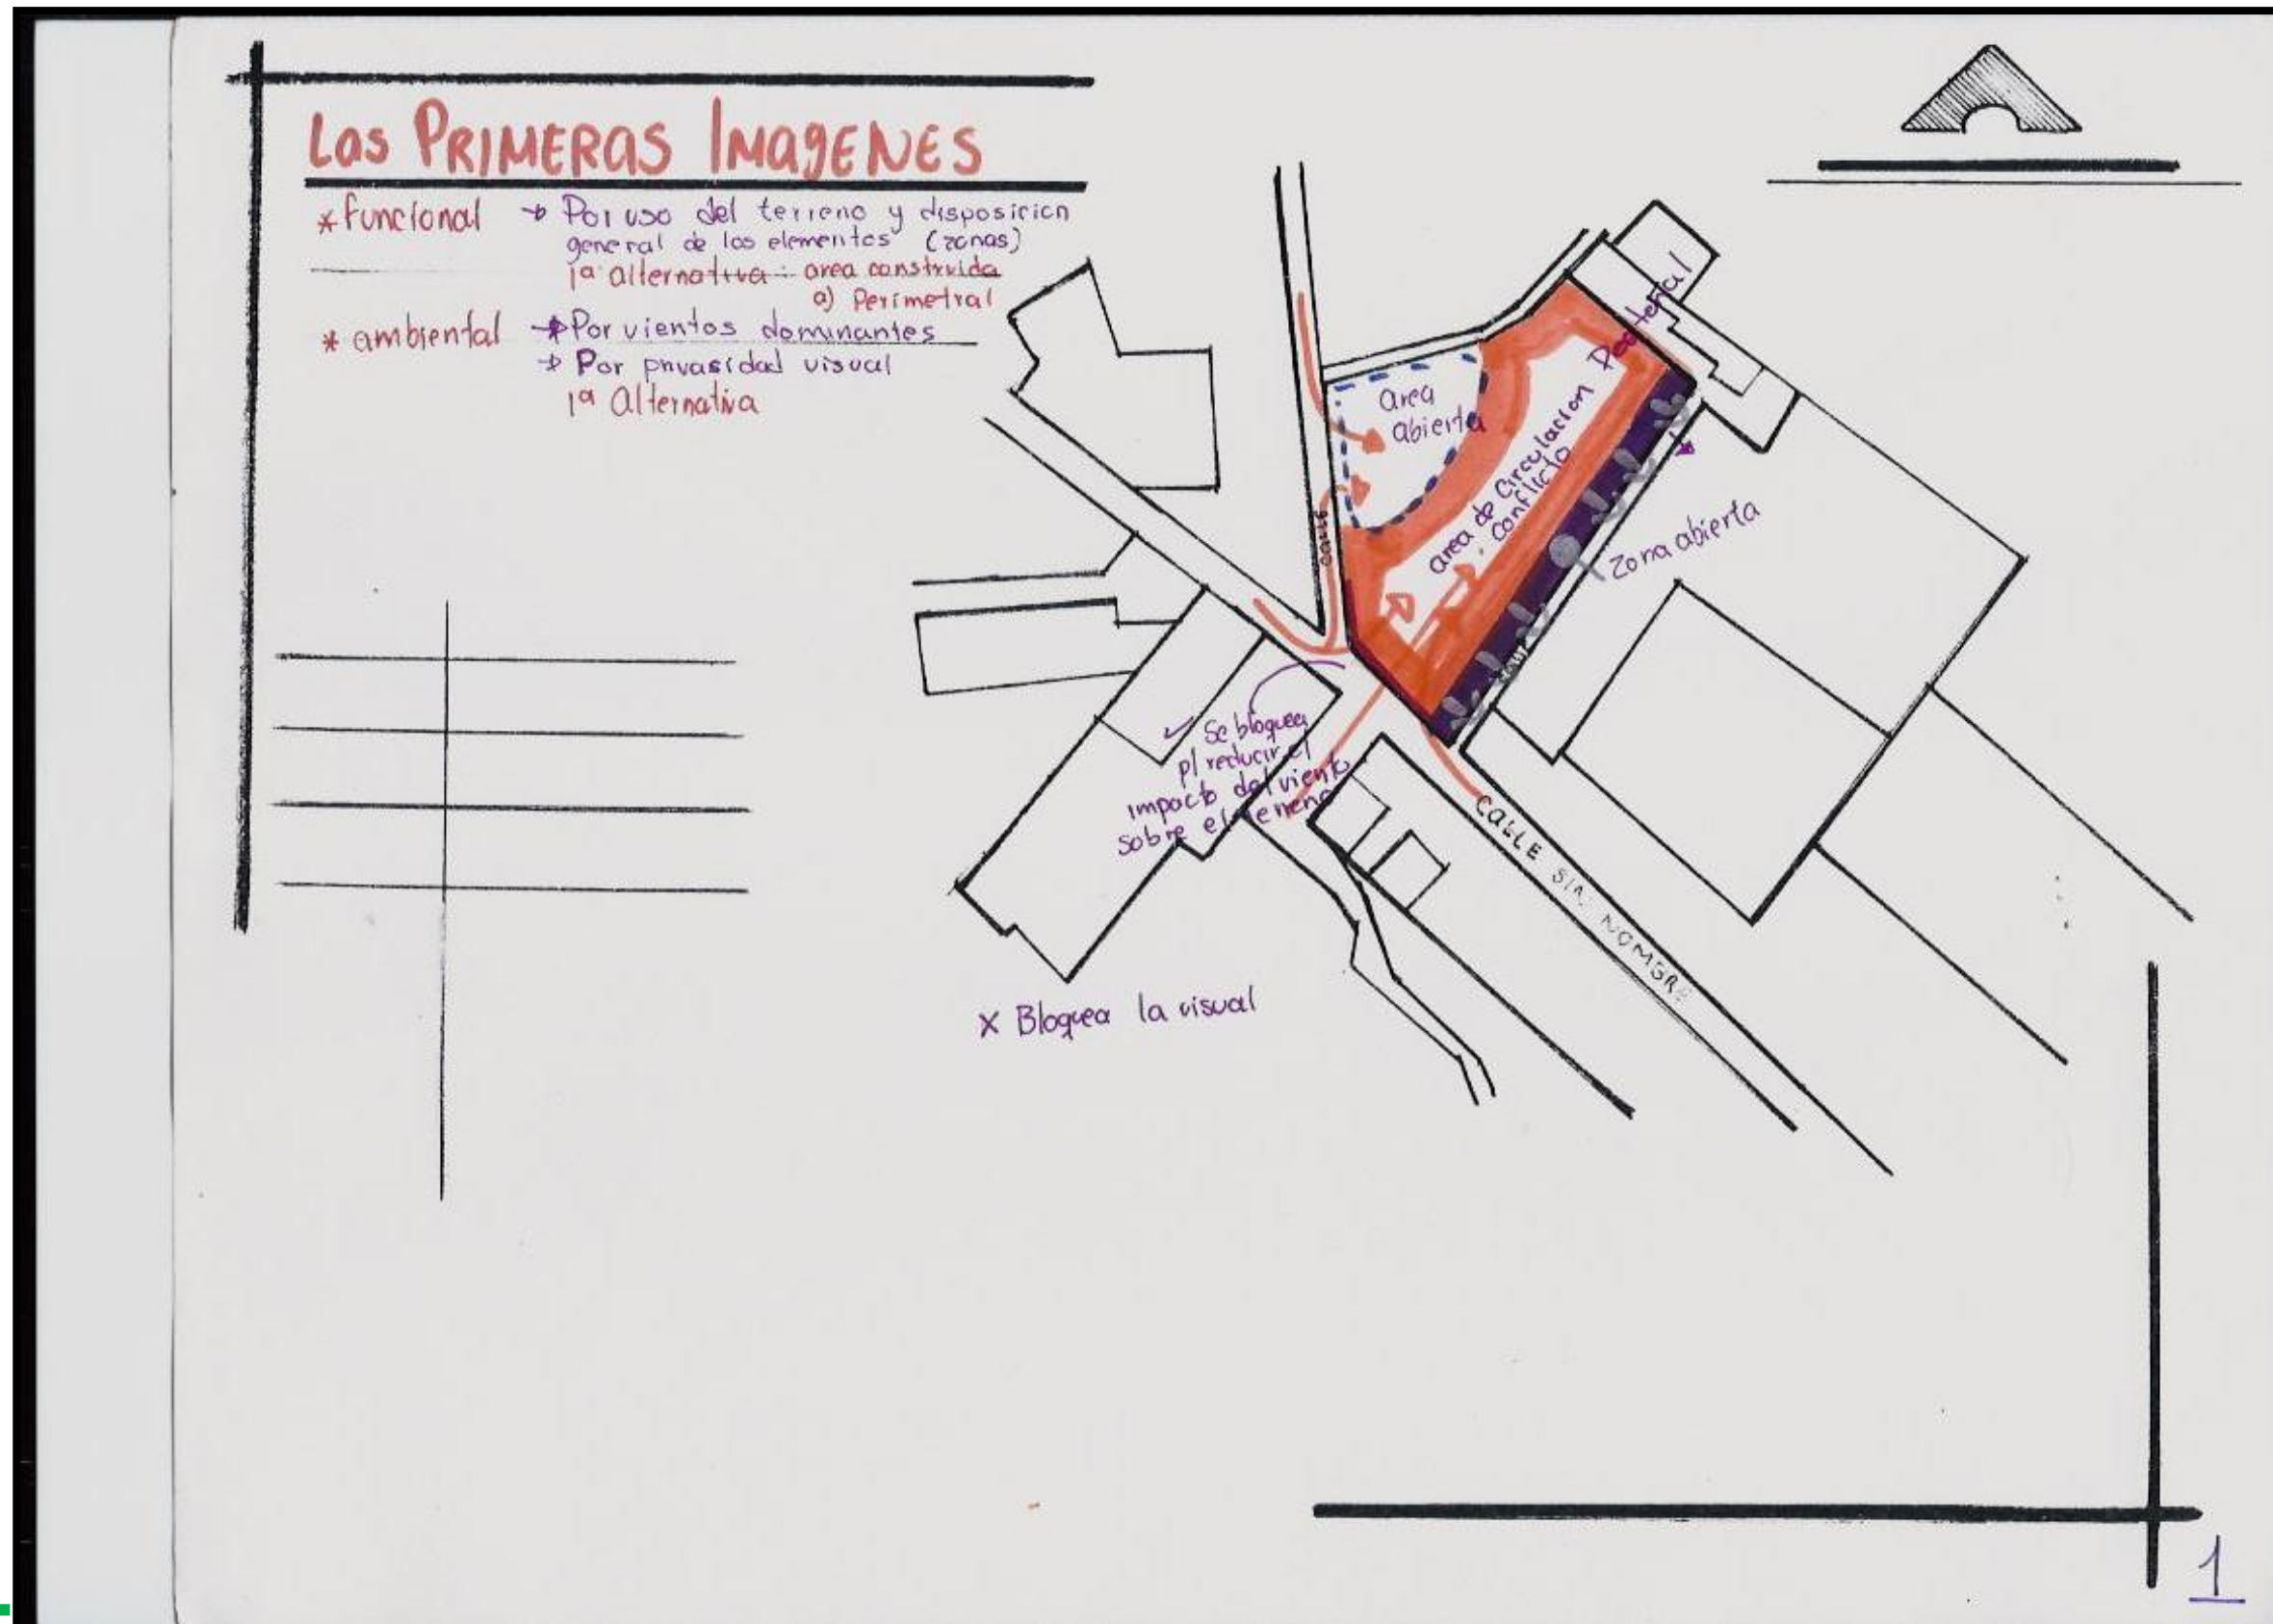 Las PRIMERAS IMAGENES
* funcional → Por uso del terreno y disposicion
general de los elementos (zonas)
1ª alternativa: area construida
a) Perimetral
* ambiental → Por vientos dominantes
→ Por privasidad visual
1ª Alternativa
Peatonal
area
abierta
area de Circulacion
conflicto
CALLE
Zona abierta
✓ Se bloquea
p/ reducir el
impacto del viento
sobre el terreno
CALLE SIN NOMBRE
X Bloquea la visual
1